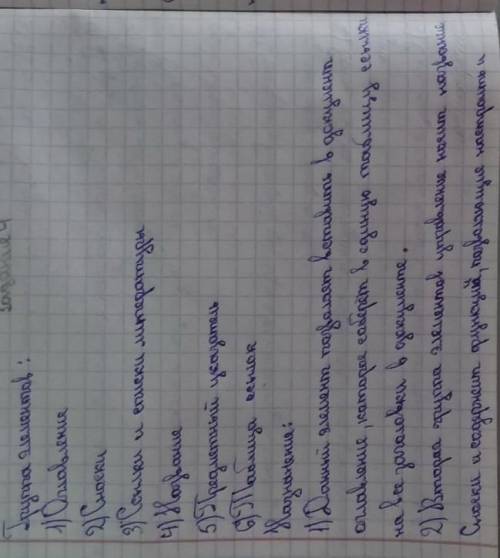 Задание 4
Группа элементов:
1) Оглавление
2) Сноски
3) Ссылки и списки литературы
4) Название
5) Предметный указатель
6) Таблица ссылок
Назначение:
1) Данный элемент позволяет вставить в документ
оглавление, которое соберёт в единую таблицу ссылки
на все заголовки в документе.
2) Вторая группа элементов управление носит название
Сноски и содержит функций, позволяющие настроить и